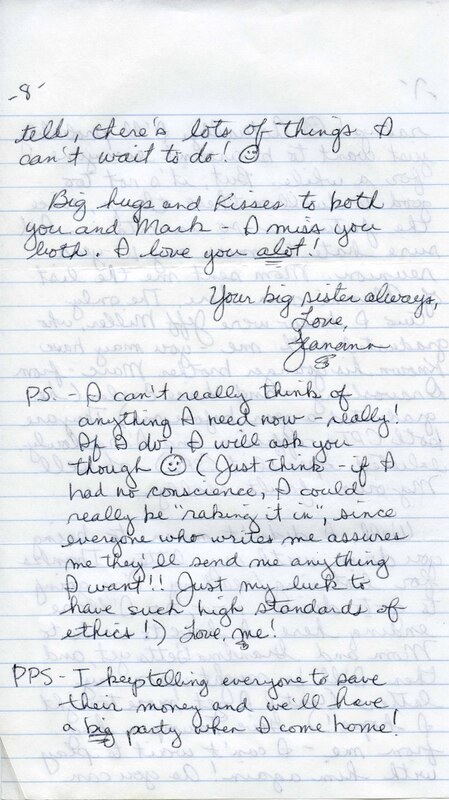 -8-
tell, there's lots of things I
can't wait to do! ☺
Big hugs and Kisses to both
you and Mark - I miss you
both. I love you alot!
Your big sister always,
Love,
Jeanann
PS. - I can't really think of
anything I need now - really!
If I do, I will ask you
though ☺ (Just think - if I
had no conscience, I could
really be "raking it in", since
everyone who writes me assures
me they'll send me anything
I want!! Just my luck to
have such high standards of
ethics!) Love, me!
PPS - I keep telling everyone to save
their money and we'll have
a big party when I come home!